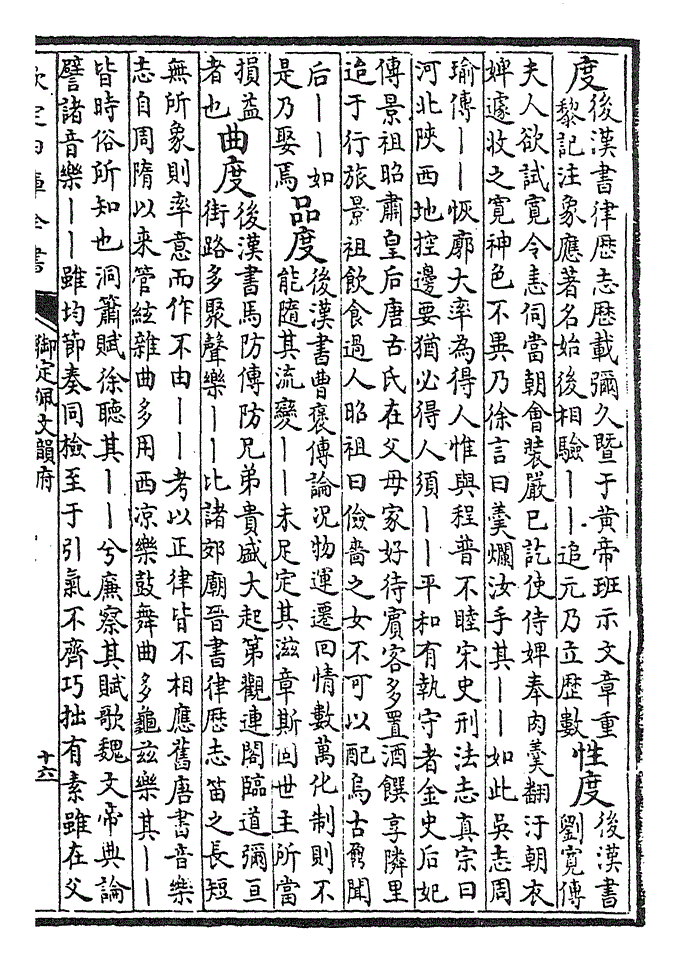 度
後漢書律歷志歷載彌久暨于黃帝班示文章重
黎記注象應著名始後相驗——追元乃立歷數
性度
後漢書
劉寛傳
夫人欲試寛令恚伺當朝會裝嚴已訖使侍婢奉肉羹翻汙朝衣
婢遽收之寛神色不異乃徐言曰羹爛汝手其——如此吳志周
瑜傳——恢廓大率為得人惟與程普不睦宋史刑法志真宗曰
河北陝西地控邊要猶必得人須——平和有執守者金史后妃
傳景祖昭肅皇后唐古氏在父母家好待賓客多置酒饌享隣里
迨于行旅景祖飲食過人昭祖曰儉嗇之女不可以配烏古鼐聞
后——如
是乃娶焉
品度
後漢書曹褒傳論况物運遷回情數萬化制則不
能隨其流變——未足定其滋章斯固世主所當
損益
者也
曲度
後漢書馬防傳防兄弟貴盛大起第觀連閣臨道彌亘
街路多聚聲樂——比諸郊廟晉書律歷志笛之長短
無所象則率意而作不由——考以正律皆不相應舊唐書音樂
志自周隋以來管絃雜曲多用西凉樂鼓舞曲多龜兹樂其——
皆時俗所知也 洞簫賦徐聽其——兮廉察其賦歌魏文帝典論
譬諸音樂——雖均節奏同檢至于引氣不齊巧拙有素雖在父
欽定四庫全書
御定佩文韻府
十六